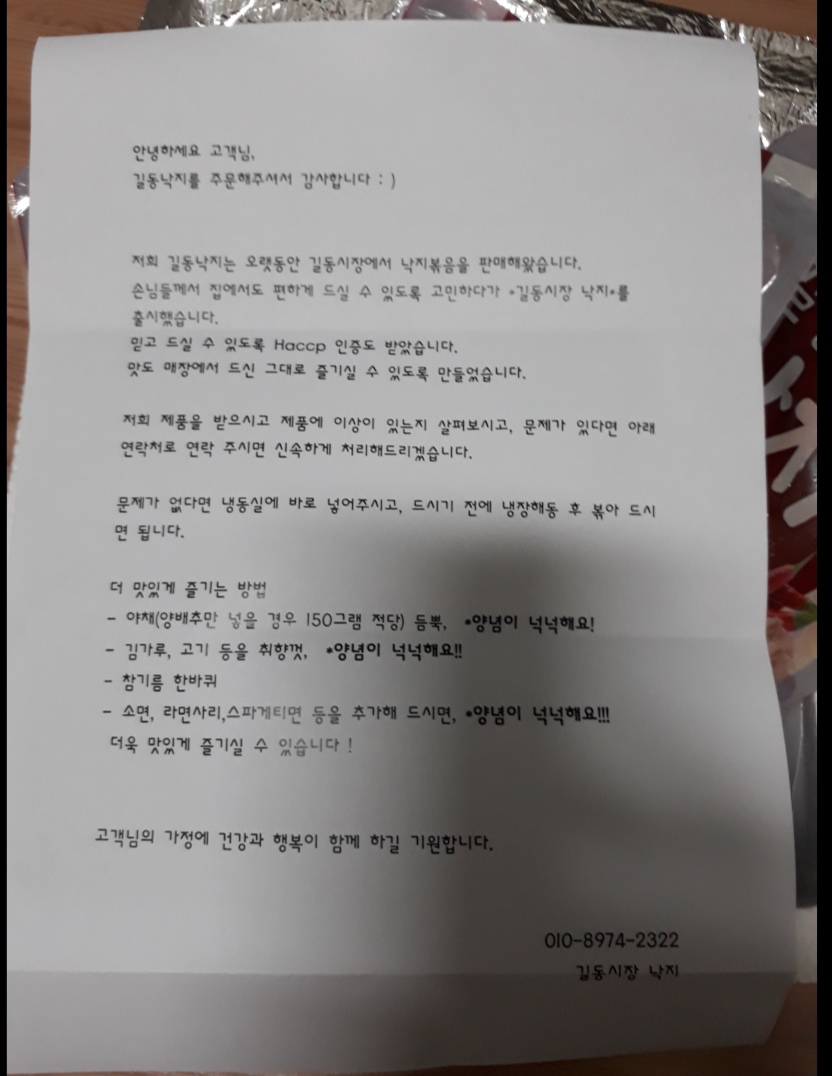 안녕하세요 고객님,
길동낙지를 주문해주셔서 감사합니다 : )
저희 길동낙지는 오랫동안 길동시장에서 낙지볶음을 판매해왔습니다.
손님들께서 집에서도 편하게 드실 수 있도록 고민하다가 *길동시장 낙지*를
출시했습니다.
믿고 드실 수 있도록 Haccp 인증도 받았습니다.
맛도 매장에서 드신 그대로 즐기실 수 있도록 만들었습니다.
저희 제품을 받으시고 제품에 이상이 있는지 살펴보시고, 문제가 있다면 아래
연락처로 연락 주시면 신속하게 처리해드리겠습니다.
문제가 없다면 냉동실에 바로 넣어주시고, 드시기 전에 냉장해동 후 볶아 드시
면 됩니다.
더 맛있게 즐기는 방법
- 야채(양배추만 넣을 경우 150그램 적당) 듬뿍, *양념이 넉넉해요!
- 김가루, 고기 등을 취향껏, *양념이 넉넉해요!!
- 참기름 한바퀴
- 소면, 라면사리,스파게티면 등을 추가해 드시면, *양념이 넉넉해요!!!
더욱 맛있게 즐기실 수 있습니다 !
고객님의 가정에 건강과 행복이 함께 하길 기원합니다.
010-8974-2322
길동시장 낙지